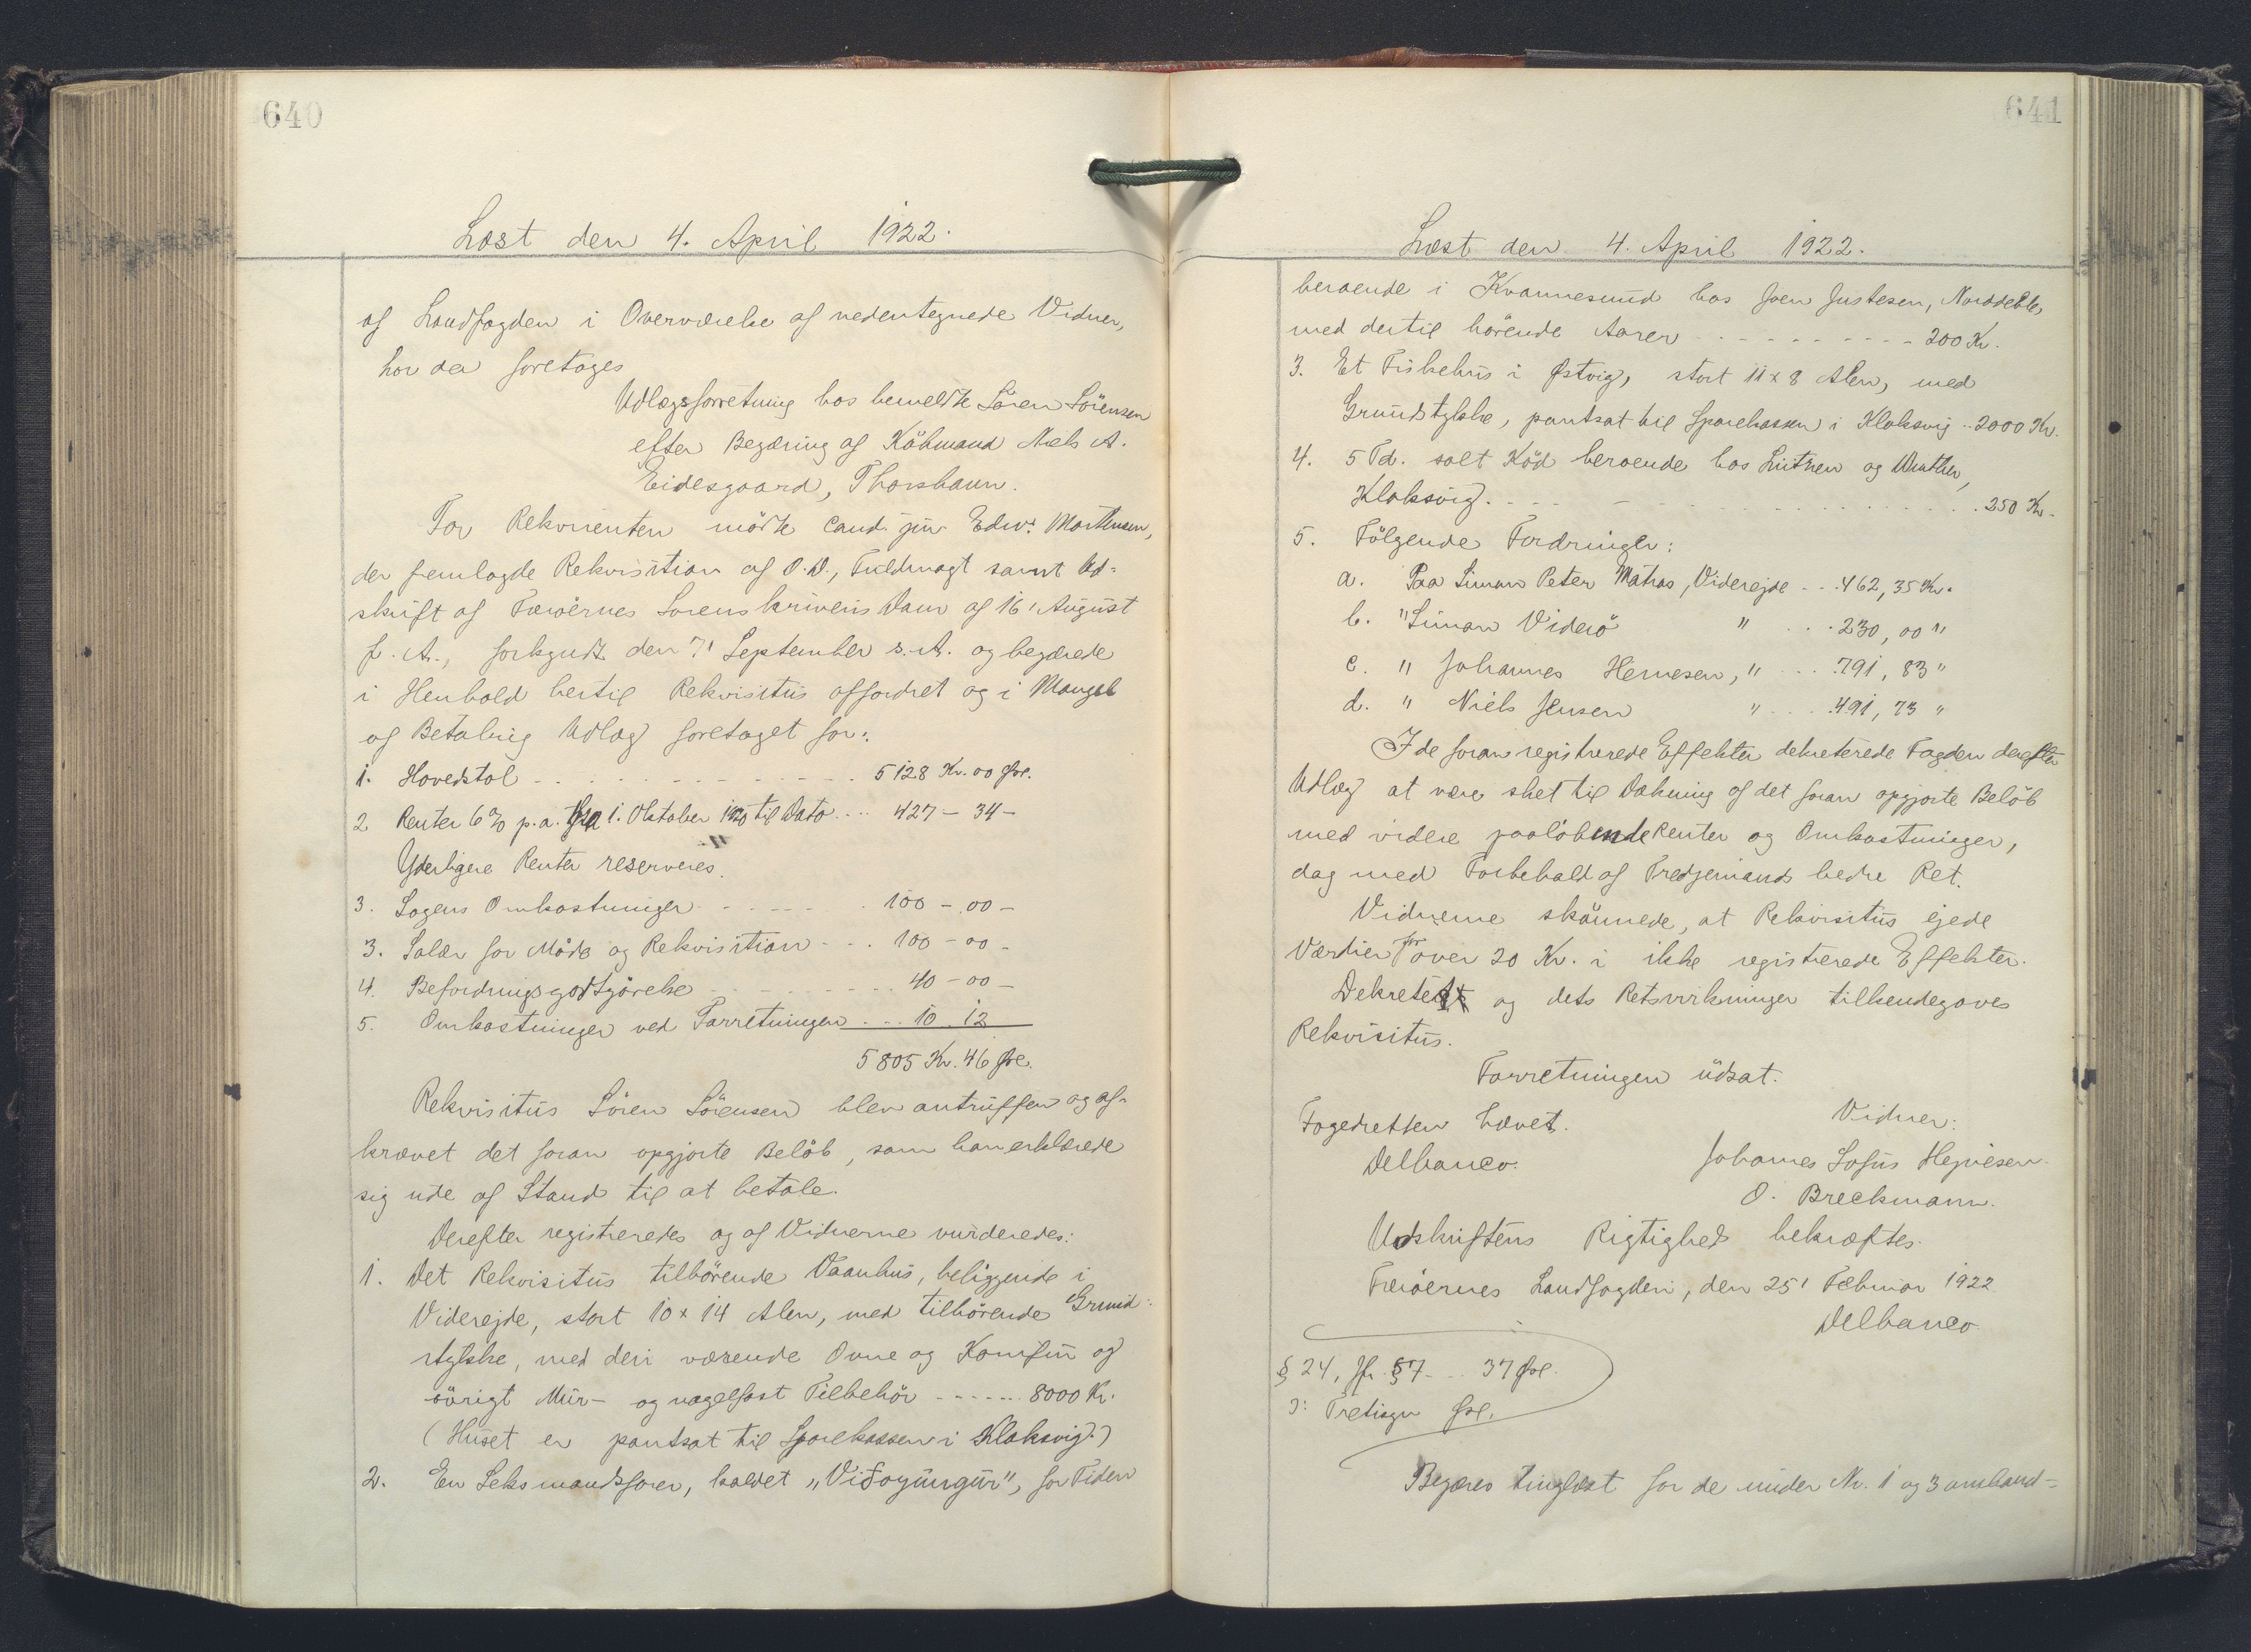 640
Læst den 4. April 1922.
af Landfogden i Overværelse af nedentegnede Vidner,
hvor da foretages
Udlægsforretning hos bemeldte Sören Sörensen
efter Begæring af Köbmand Niels A.
Eidesgaard, Thorshavn.
For Rekvirenten mödte cand. jur. Edw. Mortensen,
der fremlagde Rekvisition af O.D., Fuldmagt samt Ud-
skrift af Færöernes Sorenskriveris Dom af 16' August
f. A., forkyndt den 7' September s. A. og begærede
i Henhold hertil Rekvisitus affordret og i Mangel
af Betaling Udlæg foretaget for:
1. Hovedstol - - - 5128 Kr. 00 Øre.
2 Renter 6% p. a. fra 1. Oktober 1920 til Dato.... 427 - 34 -
Yderligere Renter reserveres.
3. Sagens Omkostninger - - - 100 - 00 -
3. Salær for Möde og Rekvisition - - - 100 - 00 -
4. Befordringsgodtgörelse - - - 40 - 00 -
5. Omkostninger ved Forretningen - - - 10. 12
5805 Kr. 46 Øre.
Rekvisitus Sören Sörensen blev antruffen og af-
krævet det foran opgjorte Belöb, som han erklærede
sig ude af Stand til at betale.
Derefter registreredes og af Vidnerne vurderedes:
1. Det Rekvisitus tilhörende Vaanhus, beliggende i
Viderejde, stort 10 x 14 Alen, med tilhörende Grund-
stykke, med deri værende Ovne og Komfur og
övrigt Mur- og nagelfast Tilbehör - - - 8000 Kr.
(Huset er pantsat til Sparekassen i Klaksvig.)
2. En Seksmandsfarer, kaldet "Viðoyingur", for Tiden
641
Læst den 4. April 1922.
beroende i Kvannesund hos Joen Justesen, Norddeble,
med dertil hörende Aarer - - - 200 Kr.
3. Et Fiskehus i Østvig, stort 11 x 8 Alen, med
Grundstykke, pantsat til Sparekassen i Klaksvig .. 2000 Kr.
4. 5 Td. salt Köd beroende hos Lützen og Winther,
Klaksvig. - - - 250 Kr.
5. Fölgende Fordringer:
a. Paa Simun Peter Matras, Viderejde - - - 462, 35 Kr.
b. " Simon Viderö " - - - 230, 00 "
c. " Johannes Hernesen, " - - - 791, 83 "
d. " Niels Jensen " - - - 491, 73 "
I de foran registrerede Effekter dekreterede Fogden derefter
Udlæg at være sket til Dækning af det foran opgjorte Belöb
med videre paalöbende Renter og Omkostninger,
dog med Forbehold af Tredjemands bedre Ret.
Vidnerne skönnede, at Rekvisitus ejede
Værdier for over 20 Kr. i ikke registrerede Effekter.
Dekretet og dets Retsvirkninger tilkendegaves
Rekvisitus.
Forretningen udsat.
Fogedretten hævet.
Vidner:
Delbanco.
Johannes Sofus Hejnesen.
O. Breckmann.
Udskriftens Rigtighed bekræftes.
Færöernes Landfogderi, den 25' Februar 1922
Delbanco
§ 24, jfr. § 7 - - - 37 Øre.
ɔ: Tretisyv Øre.
Begæres tinglæst for de under Nr. 1 og 3 omhand-